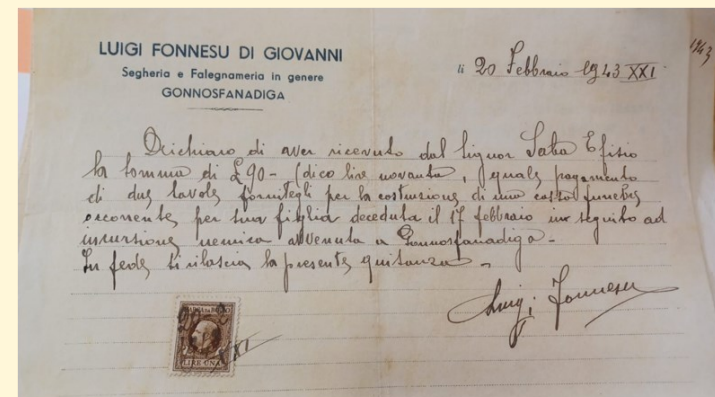 LUIGI FONNESU DI GIOVANNI
Segheria e Falegnameria in genere
GONNOSFANADIGA
li 20 Febbraio 1943 XXI
1943
Dichiaro di aver ricevuto dal Signor Saba Efisio
la somma di £90- (dico lire novanta, quale pagamento
di due tavole fornitegli per la costruzione di una cassa funebre
occorrente per sua figlia deceduta il 17 febbraio in seguito ad
incursione nemica avvenuta a Gonnosfanadiga-
In fede si rilascia la presente quitanza-
Luigi Fonnesu
LIRE UNA
XXI